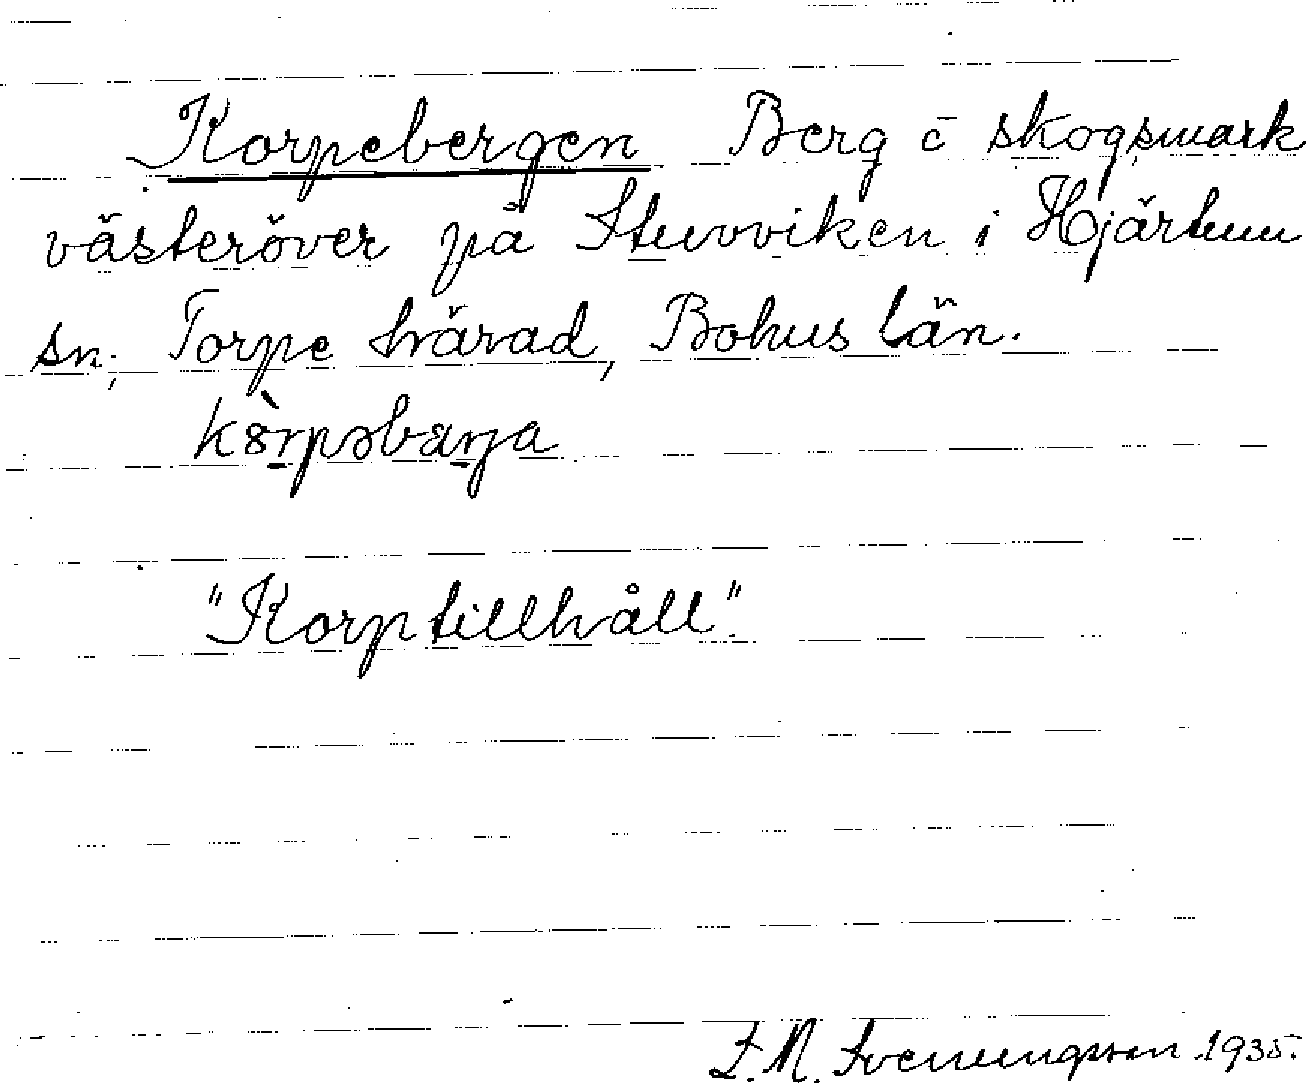 Korpebergen Berg c̄ skogsmark
västeröver på Stuvviken i Hjärtum
sn; Torpe härad, Bohus län.
"Korptillhåll".
Svenungsson 1935.